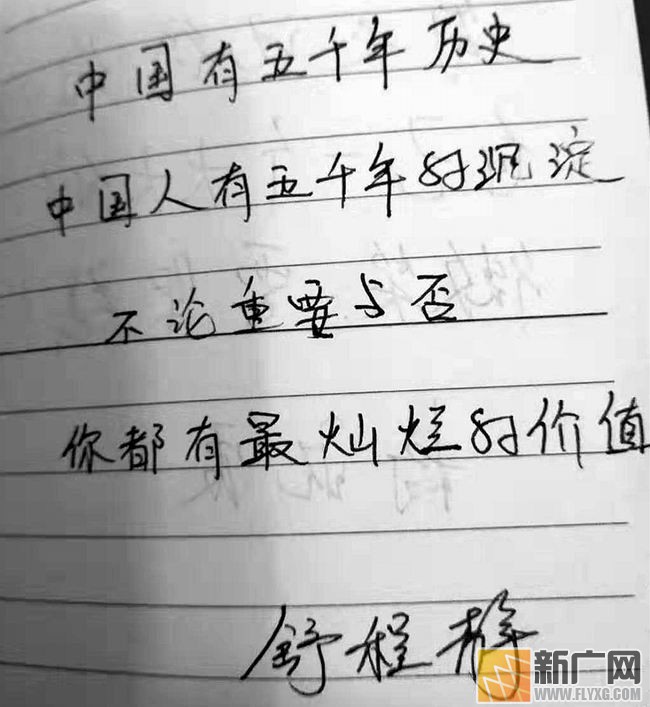 中国有五千年历史
中国人有五千年的沉淀
不论重要与否
你都有最灿烂的价值
舒程
新广网
WWW.FLYXG.COM